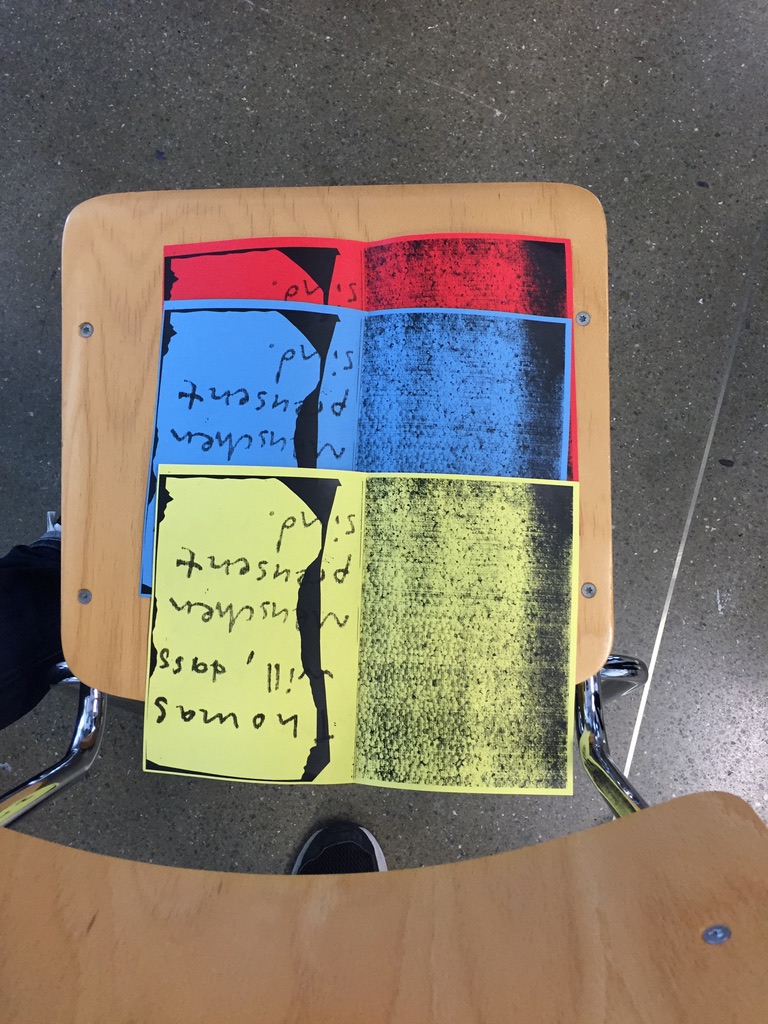 Thomas
will, dass
Menschen
preusent
sind.
Menschen
preusent
sind.
sind.